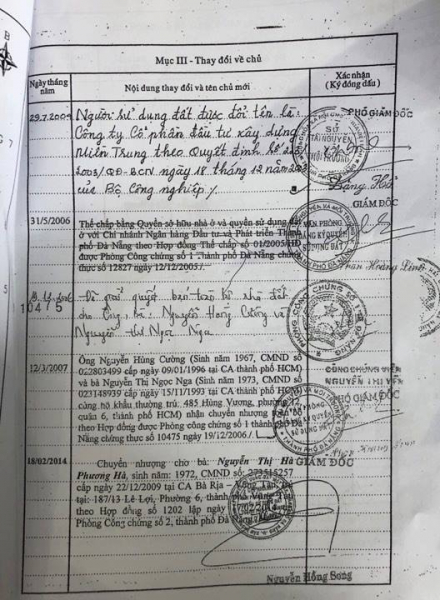 Mục III - Thay đổi về chủ
Ngày tháng năm
Nội dung thay đổi và tên chủ mới
Xác nhận
(Ký đóng dấu)
29.7.2004
Người sử dụng đất được đổi tên là
Công ty Cổ phần đầu tư xây dựng
Miền Trung theo Quyết định số 213
2003/QĐ-BCN ngày 18 tháng 12 năm 2003
của Bộ Công nghiệp/.
PHÓ GIÁM ĐỐC
SỞ
TÀI NGUYÊN
31/5/2006
Thế chấp bằng Quyền sở hữu nhà ở và quyền sử dụng đất
ở với Chi nhánh Ngân hàng Đầu tư và Phát triển Thành
phố Đà Nẵng theo Hợp đồng Thế chấp số 01/2005/HĐ
được Phòng Công chứng số 1 Thành phố Đà Nẵng chứng
thực số 12827 ngày 12/12/2005/.
VĂN PHÒNG
ĐĂNG KÝ QUYỀN
SỬ DỤNG ĐẤT
Đã giải quyết bán toàn bộ nhà đất
cho ông, bà: Nguyễn Hùng Cường và
Nguyễn Thị Ngọc Nga
10475
PHÒNG CÔNG CHỨNG SỐ
12/3/2007
Ông Nguyễn Hùng Cường (Sinh năm 1967, CMND số
022803499 cấp ngày 09/01/1996 tại CA thành phố HCM)
và bà Nguyễn Thị Ngọc Nga (Sinh năm 1973, CMND số
023148939 cấp ngày 15/11/1993 tại CA thành phố HCM)
cùng hộ khẩu thường trú: 485 Hùng Vương, phường 12
quận 6, thành phố HCM) nhận chuyển nhượng
theo Hợp đồng được Phòng công chứng số 1 thành phố Đà
Nẵng chứng thực số 10475 ngày 19/12/2006./.
CÔNG CHỨNG VIÊN
NGUYỄN THỊ
18/02/2014
Chuyển nhượng cho bà: Nguyễn Thị Hà
Phương Hà, sinh năm: 1972, CMND số: 273515257
cấp ngày 22/12/2009 tại CA Bà Rịa - Vũng Tàu,
tại: 187/13 Lê Lợi, Phường 6, thành phố Vũng Tàu
theo Hợp đồng số 1202 lập ngày
Phòng Công chứng số 2, thành phố Đà Nẵng
GIÁM ĐỐC
Nguyễn Hồng Song